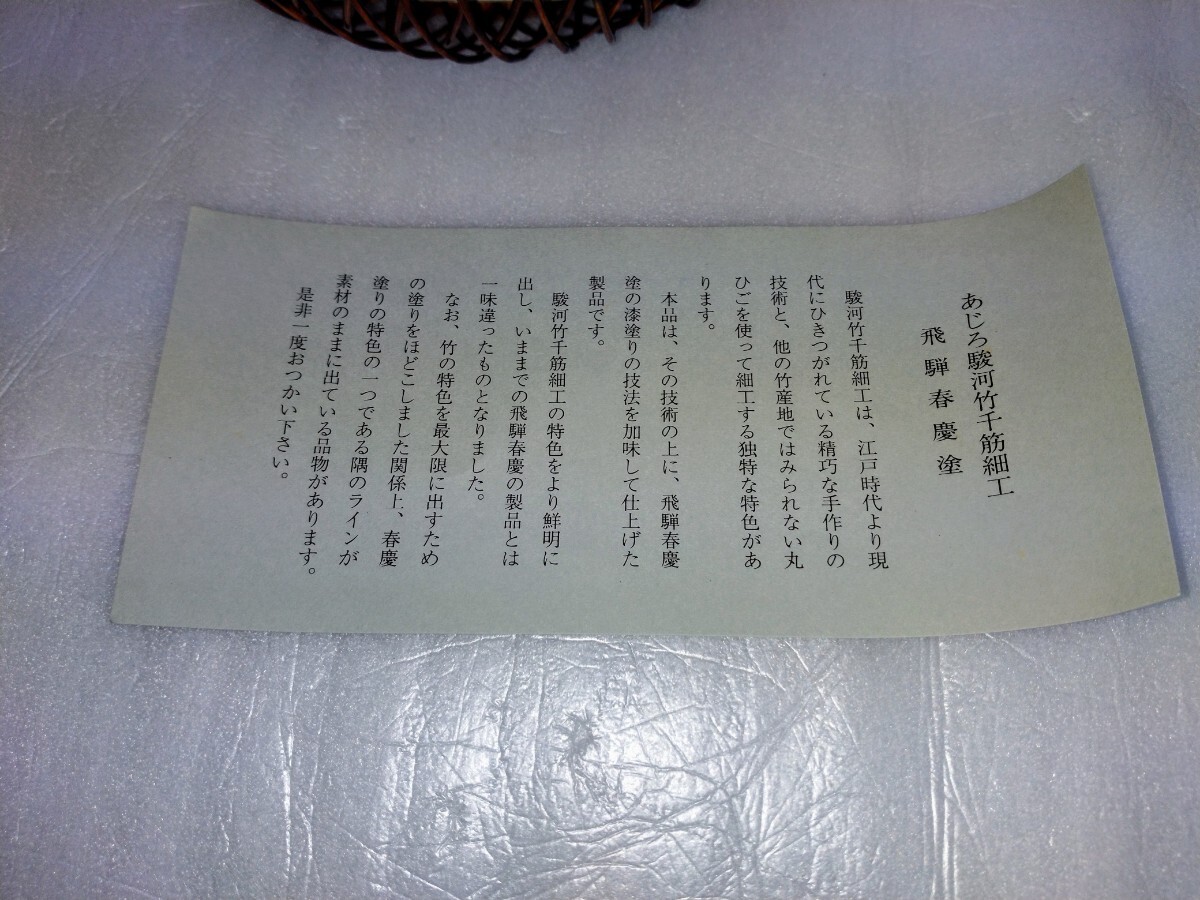 あじろ駿河竹千筋細工
飛騨春慶塗
駿河竹千筋細工は、江戸時代より現
代にひきつがれている精巧な手作りの
技術と、他の竹産地ではみられない丸
ひごを使って細工する独特な特色があ
ります。
本品は、その技術の上に、飛騨春慶
塗の漆塗りの技法を加味して仕上げた
製品です。
駿河竹千筋細工の特色をより鮮明に
出し、いままでの飛騨春慶の製品とは
一味違ったものとなりました。
なお、竹の特色を最大限に出すため
の塗りをほどこしました関係上、春慶
塗りの特色の一つである隅のラインが
素材のままに出ている品物があります。
是非一度おつかい下さい。